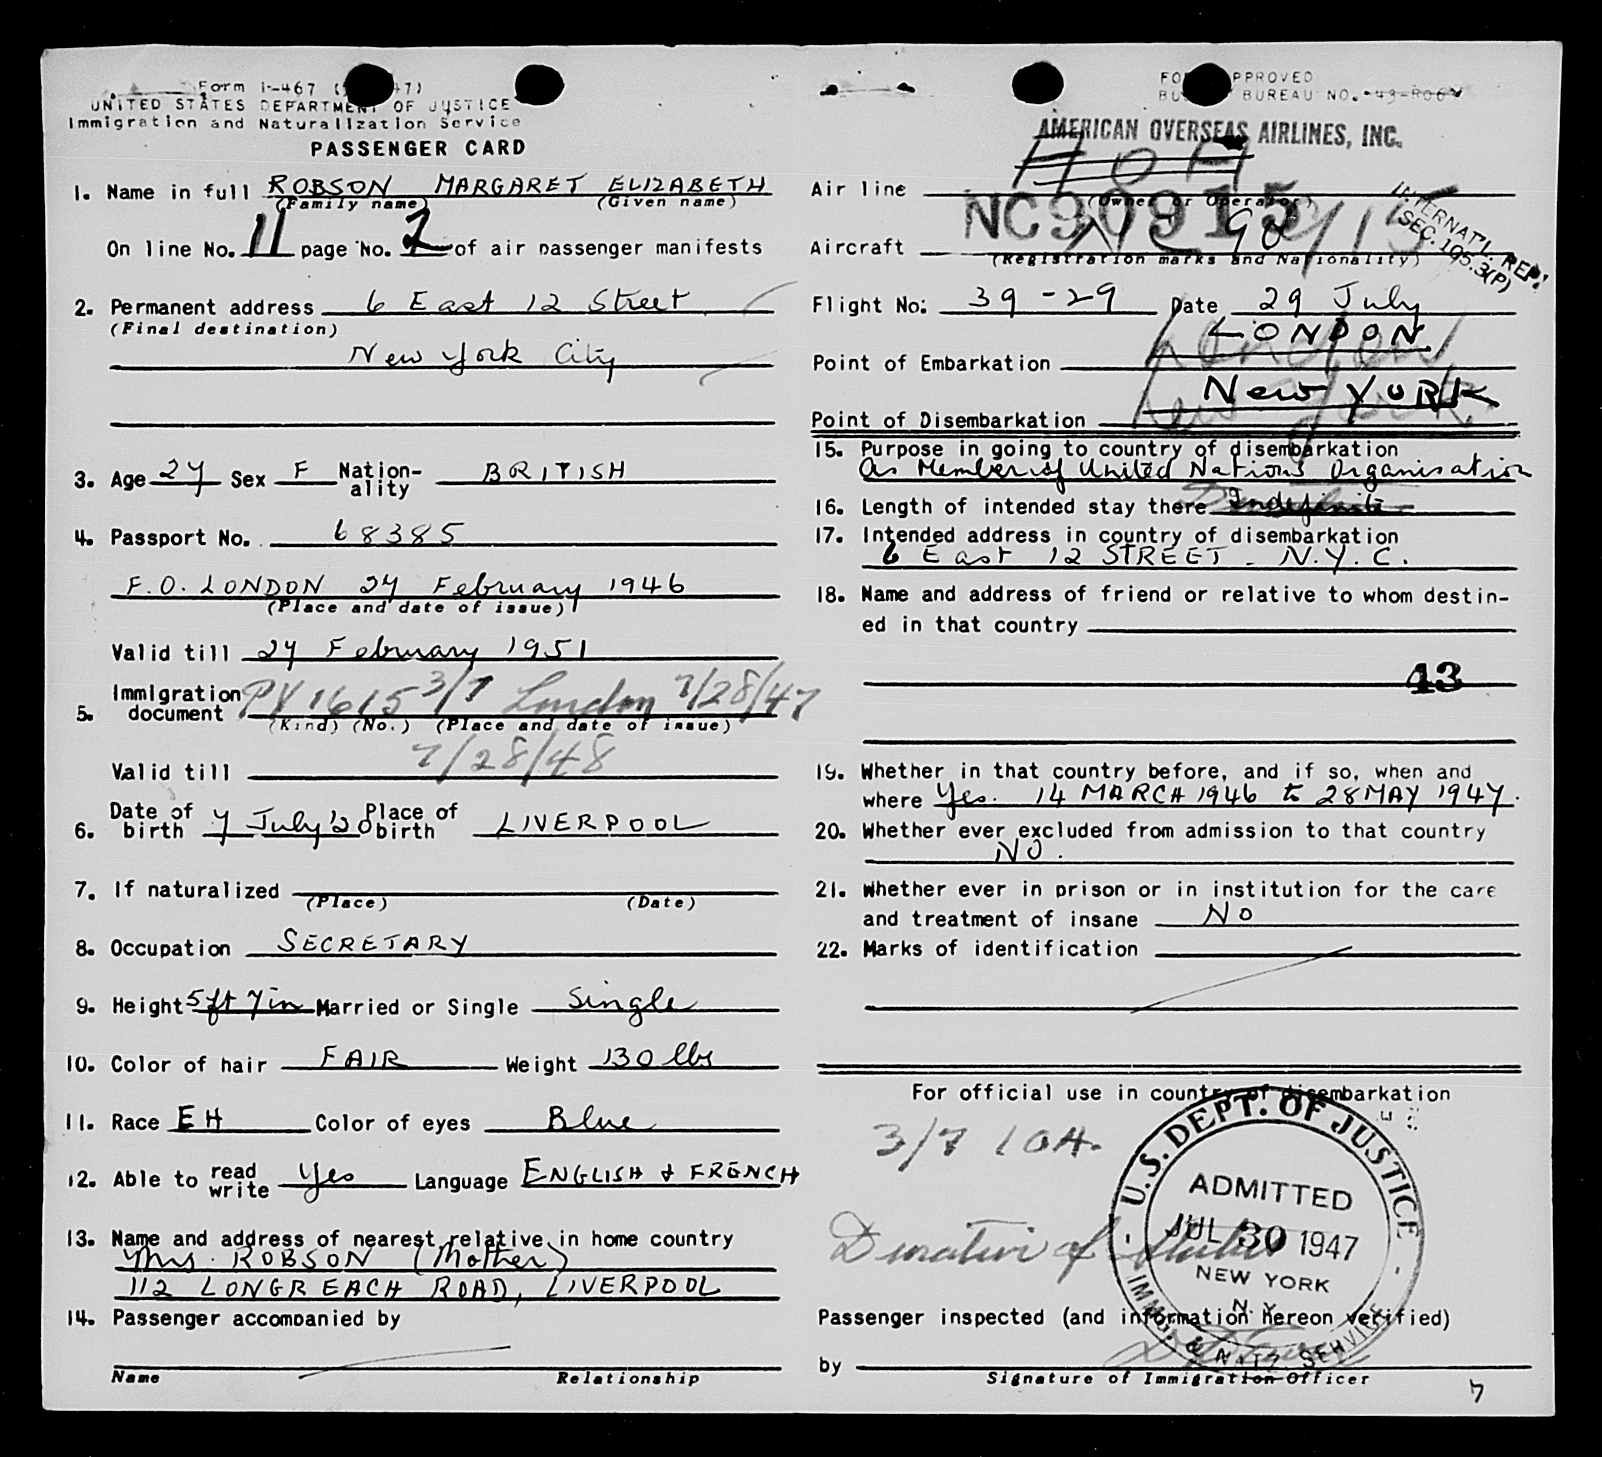 Form I-467
UNITED STATES DEPARTMENT OF JUSTICE
Immigration and Naturalization Service
PASSENGER CARD
1. Name in full ROBSON MARGARET ELIZABETH
(Family name) (Given name)
On line No. 11 page No. 2 of air passenger manifests
2. Permanent address 6 East 12 Street
(Final destination)
New York City
3. Age 27 Sex F Nation-ality BRITISH
4. Passport No. 68385
F.O. LONDON 27 February 1946
(Place and date of issue)
Valid till 27 February 1951
5. Immigration document PV 1615 3/7 London 7/28/47
(Kind) (No.) (Place and date of issue)
Valid till 7/28/48
6. Date of birth 7 July '20 Place of birth LIVERPOOL
7. If naturalized
(Place) (Date)
8. Occupation SECRETARY
9. Height 5ft 7in Married or Single Single
10. Color of hair FAIR Weight 130 lbs
11. Race EH Color of eyes Blue
12. Able to read write Yes Language ENGLISH & FRENCH
13. Name and address of nearest relative in home country
Mrs. ROBSON (Mother)
112 LONGREACH ROAD, LIVERPOOL
14. Passenger accompanied by
Name Relationship
FORM APPROVED
BUREAU NO.
AMERICAN OVERSEAS AIRLINES, INC.
Air line AOA
(Owner or Operator)
NC90915
INTERNAT'L. REP.
SEC. 105.3(P)
Aircraft
(Registration marks and Nationality)
Flight No: 39-29 Date 29 July
Point of Embarkation LONDON
Point of Disembarkation New YORK
15. Purpose in going to country of disembarkation
as Member of United Nations Organisation
16. Length of intended stay there Indefinite
17. Intended address in country of disembarkation
6 East 12 STREET - N.Y.C.
18. Name and address of friend or relative to whom destin-
ed in that country
43
19. Whether in that country before, and if so, when and
where Yes. 14 MARCH 1946 to 28 MAY 1947.
20. Whether ever excluded from admission to that country
NO.
21. Whether ever in prison or in institution for the care
and treatment of insane No
22. Marks of identification
For official use in country of disembarkation
3/7 10A.
Duration of Status
U.S. DEPT. OF JUSTICE
ADMITTED
JUL 30 1947
NEW YORK
N.Y.
IMMG. & NATZ. SERVICE
Passenger inspected (and information hereon verified)
by
Signature of Immigration Officer
7